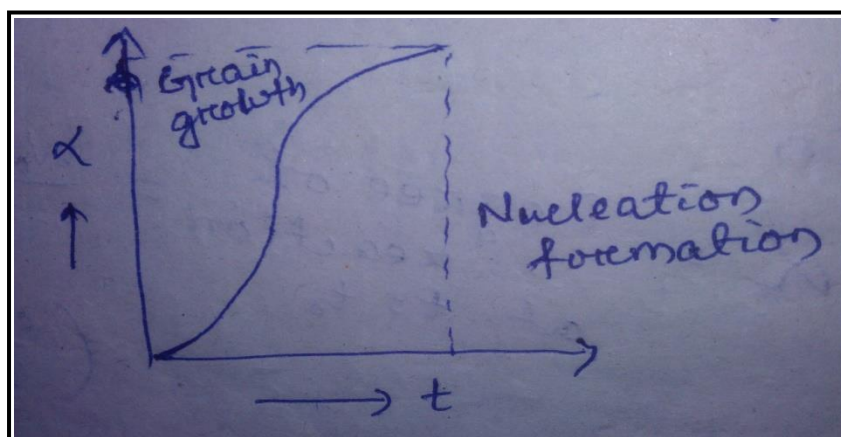 Grain
growth
α
t
Nucleation
formation